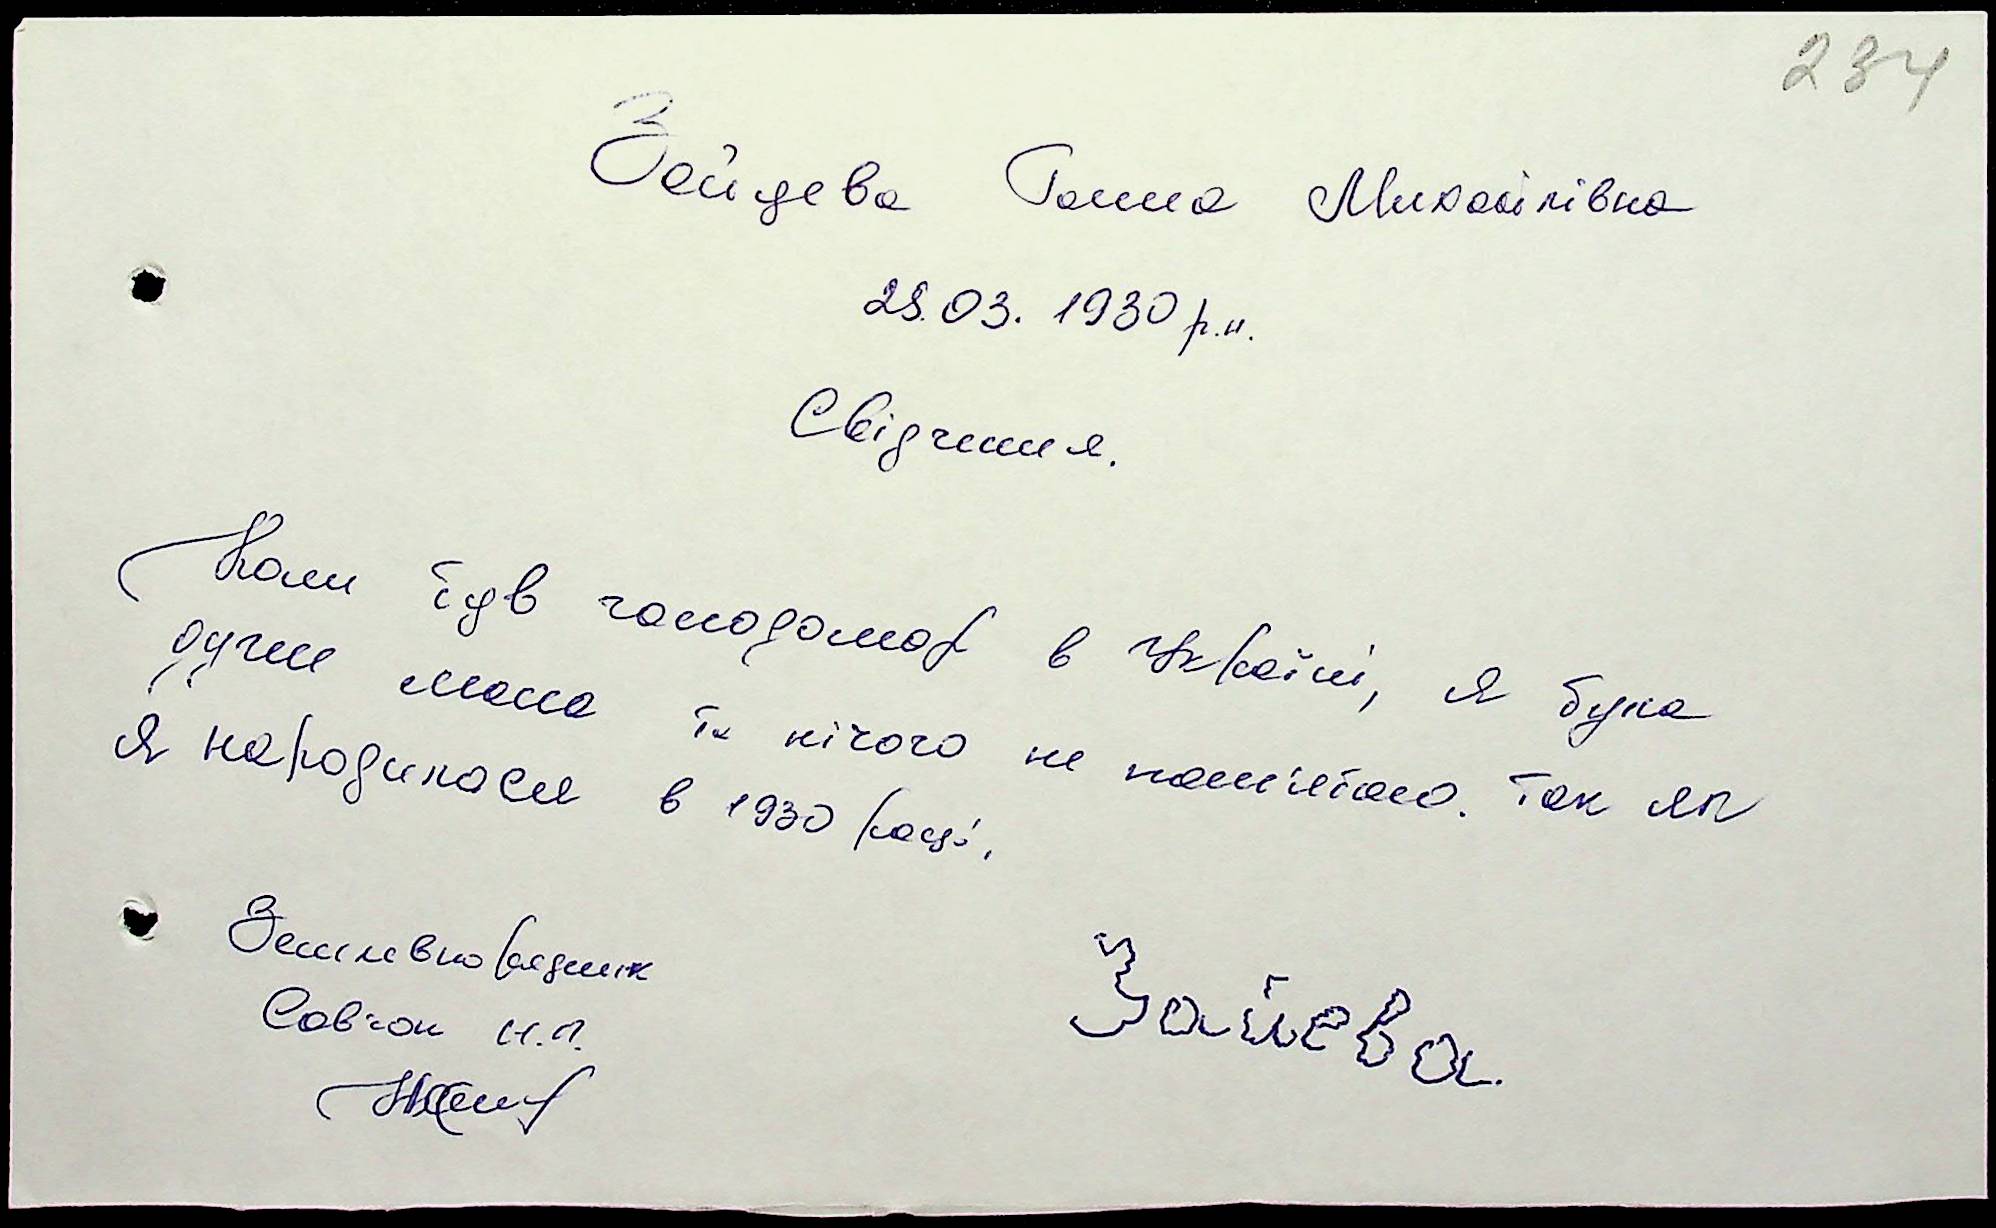 234
Зайцева Ганна Михайлівна
28.03.1930 р.н.
Свідчення.
Коли був голодомор в Україні, я була
дуже мала та нічого не пам'ятаю. Так як
я народилася в 1930 році.
Землевпорядник
Савчак Н.П.
Зайцева.